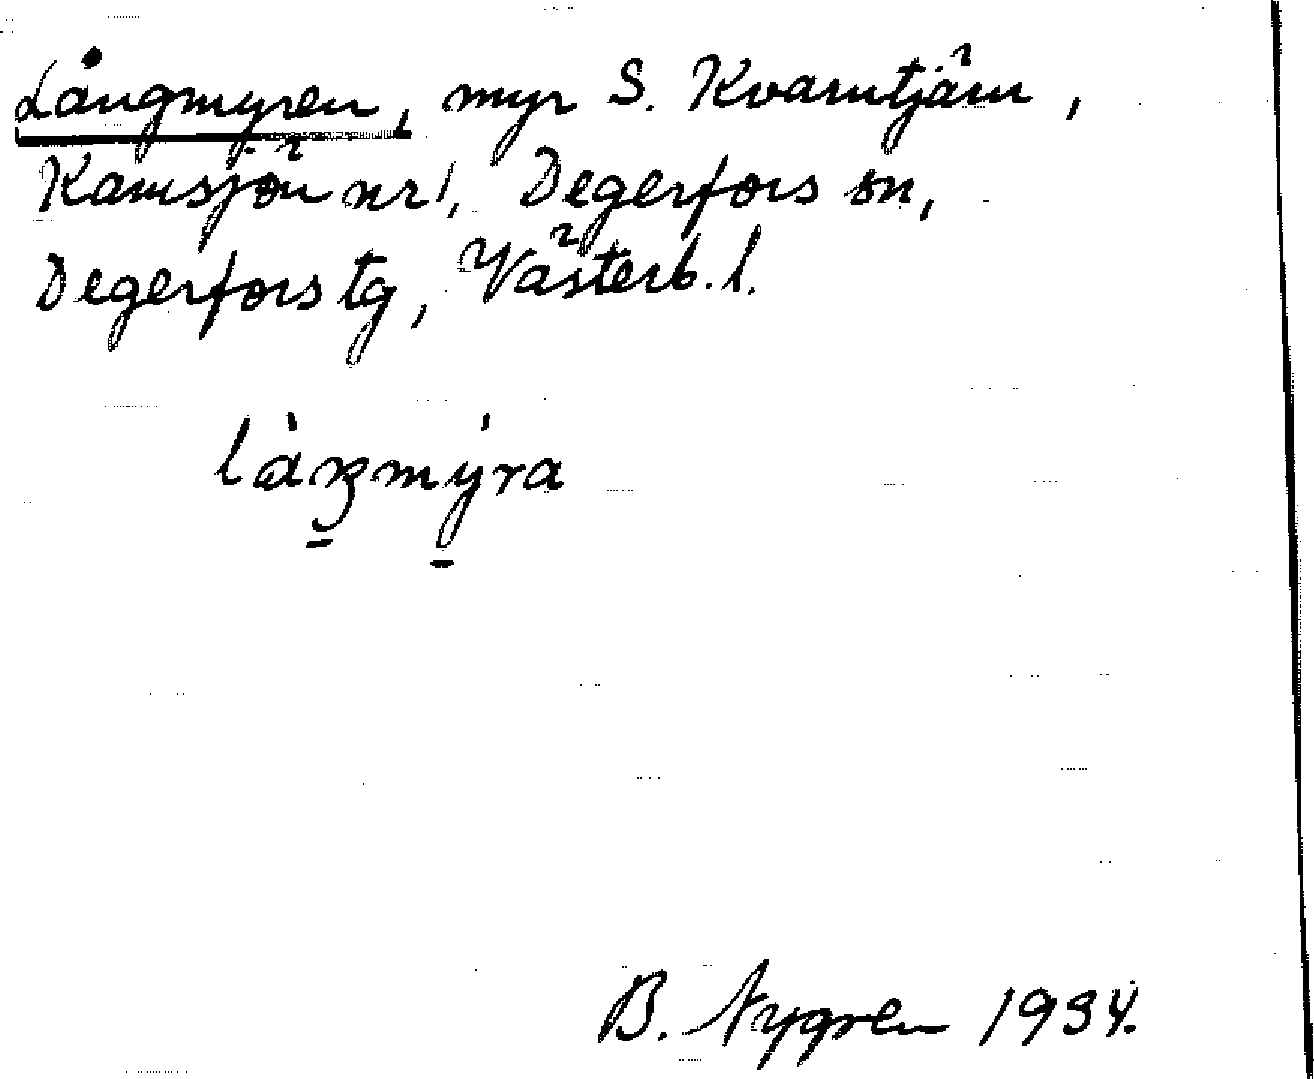 Långmyren, myr S. Kvarntjärn,
Kamsjön nr 1, Degerfors sn,
Degerfors tg, Västerb. l.
làŋmýra
B. Nygren 1934.